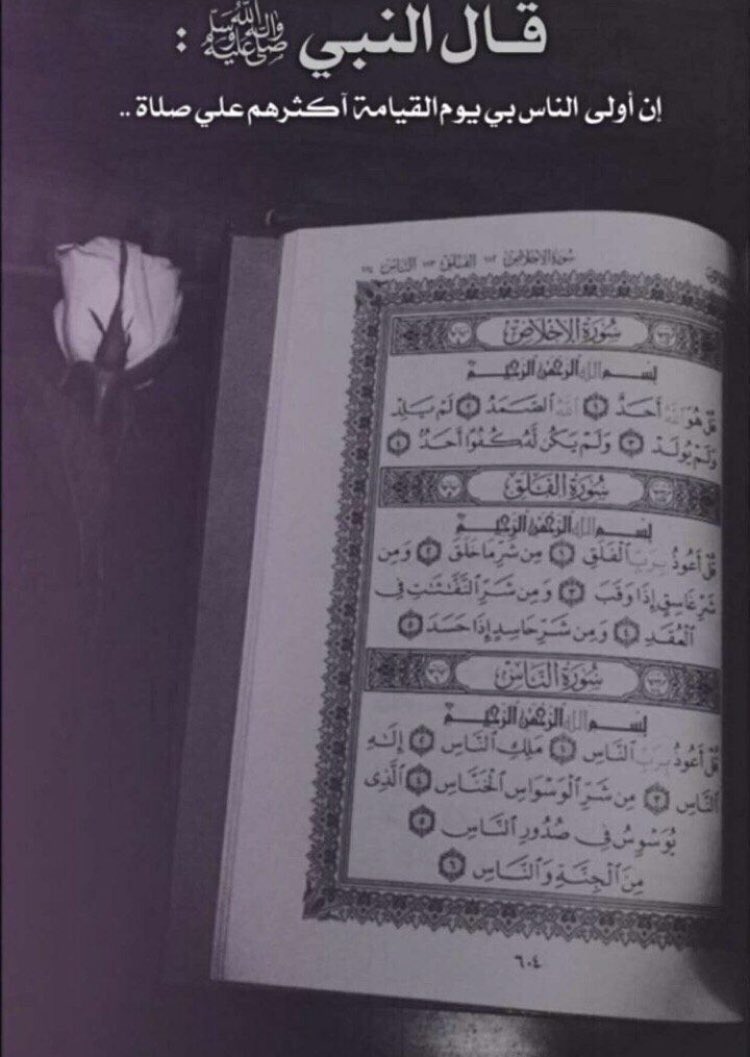 قال النبي ﷺ :
إن أولى الناس بي يوم القيامة آكثرهم علي صلاة ..
سورة الإخلاص ١١٢ الفلق ١١٣ الناس ١١٤
سُورَةُ الإِخْلَاصِ
بِسْمِ اللَّهِ الرَّحْمَٰنِ الرَّحِيمِ
قُلْ هُوَ اللَّهُ أَحَدٌ ١ اللَّهُ الصَّمَدُ ٢ لَمْ يَلِدْ
وَلَمْ يُولَدْ ٣ وَلَمْ يَكُن لَّهُ كُفُوًا أَحَدٌ ٤
سُورَةُ الفَلَقِ
بِسْمِ اللَّهِ الرَّحْمَٰنِ الرَّحِيمِ
قُلْ أَعُوذُ بِرَبِّ الْفَلَقِ ١ مِن شَرِّ مَا خَلَقَ ٢ وَمِن
شَرِّ غَاسِقٍ إِذَا وَقَبَ ٣ وَمِن شَرِّ النَّفَّٰثَٰتِ فِي
الْعُقَدِ ٤ وَمِن شَرِّ حَاسِدٍ إِذَا حَسَدَ ٥
سُورَةُ النَّاسِ
بِسْمِ اللَّهِ الرَّحْمَٰنِ الرَّحِيمِ
قُلْ أَعُوذُ بِرَبِّ النَّاسِ ١ مَلِكِ النَّاسِ ٢ إِلَٰهِ
النَّاسِ ٣ مِن شَرِّ الْوَسْوَاسِ الْخَنَّاسِ ٤ الَّذِي
يُوَسْوِسُ فِي صُدُورِ النَّاسِ ٥
مِنَ الْجِنَّةِ وَالنَّاسِ ٦
٦٠٤